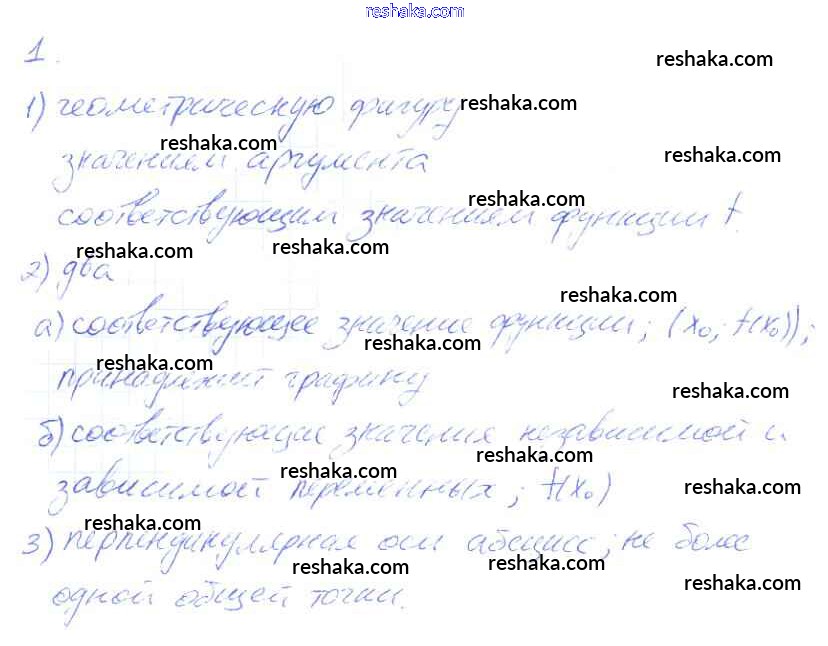 reshaka.com
1.
reshaka.com
1) геометрическую фигуру
reshaka.com
reshaka.com
значениям аргумента
reshaka.com
reshaka.com
соответствующим значениям функции f.
reshaka.com
reshaka.com
2) два
reshaka.com
а) соответствующее значение функции; (x₀; f(x₀));
reshaka.com
reshaka.com
принадлежит графику
reshaka.com
б) соответствующие значения независимой и
reshaka.com
reshaka.com
зависимой переменных; f(x₀)
reshaka.com
reshaka.com
3) перпендикулярная оси абсцисс; не более
reshaka.com
reshaka.com
одной общей точки.
reshaka.com